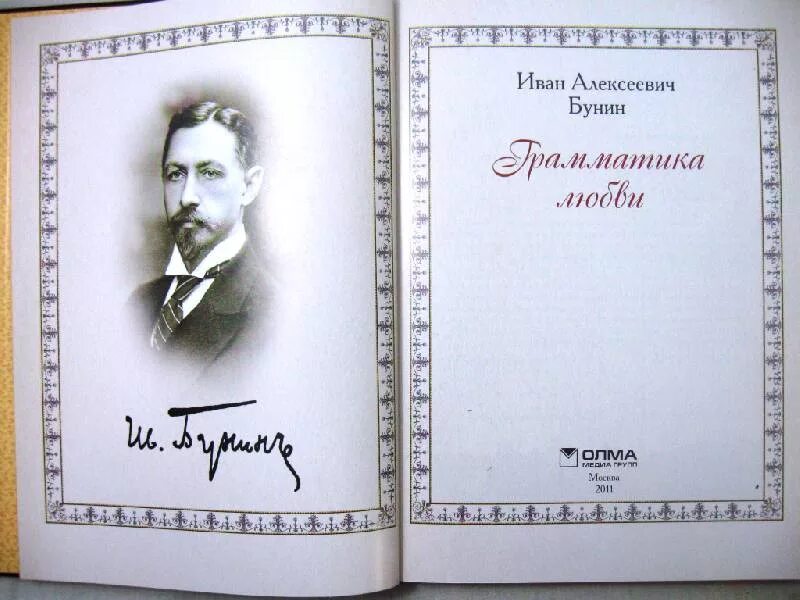 Ив. Бунинъ
Иван Алексеевич
Бунин
Грамматика
любви
ОЛМА
МЕДИА ГРУПП
Москва
2011